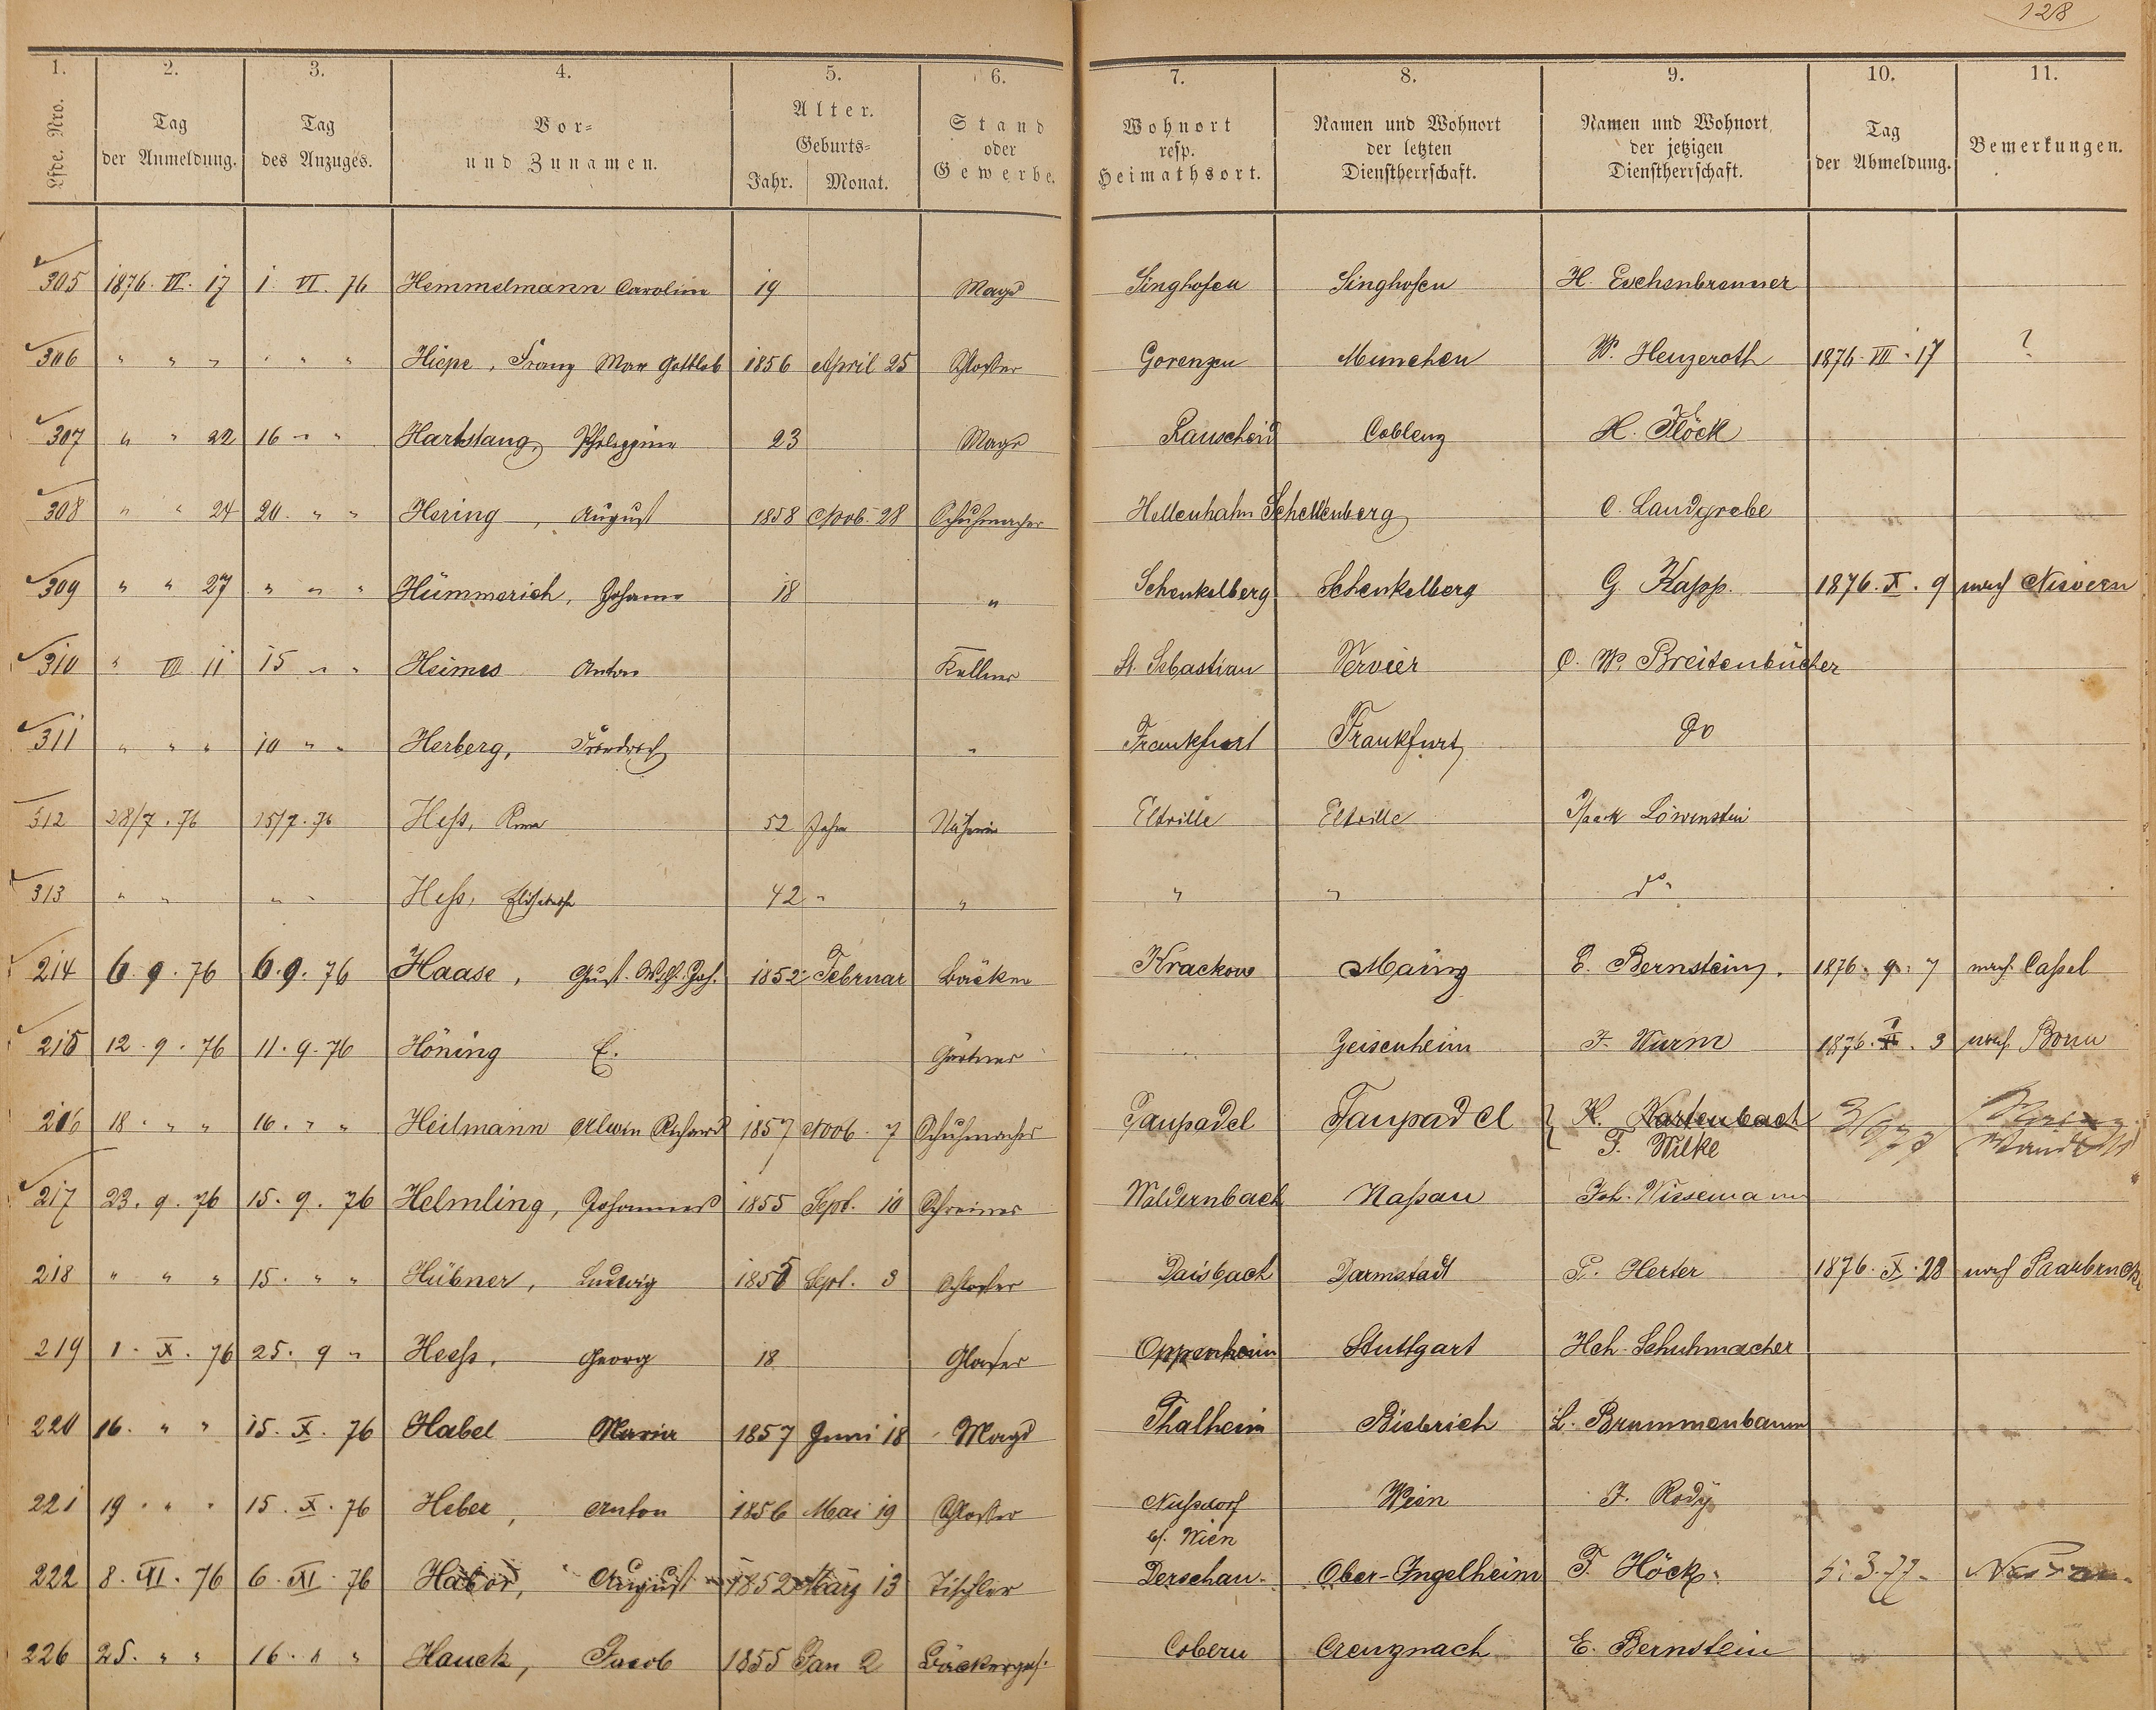 128
1. 2. 3. 4. 5. 6. 7. 8. 9. 10. 11.
Lfde. Nro. Tag der Anmeldung. Tag des Anzuges. Vor- und Zunamen. Alter. Geburts- Jahr. Monat. Stand oder Gewerbe. Wohnort resp. Heimathsort. Namen und Wohnort der letzten Dienstherrschaft. Namen und Wohnort der jetzigen Dienstherrschaft. Tag der Abmeldung. Bemerkungen.
305 1876. VI. 17 1. VI. 76 Hemmelmann Caroline 19 Magd Singhofen Singhofen H. Eschenbrenner
306 " " " " " " Hiepe, Franz Max Gottlob 1856 April 25 Schlosser Gorenzen Munchen W. Henzeroth 1876. VII. 17 ?
307 " " 22 16 " " Hartstang, Philippine 23 Magd Rauscheid Coblenz H. Flöck
308 " " 24 20. " " Hering, August 1858 Novb. 28 Schuhmacher Hellenhahn Schellenberg C. Landgrebe
309 " " 27 " " " Hümmerich, Johann 18 " Schenkelberg Schenkelberg G. Kapp. 1876. X. 9 nach Nievern
310 " VII 11 15 " " Heimes Anton Kellner St. Sebastian Vervier C. W. Breitenbücher
311 " " " 10 " " Herberg, Friedrich " Frankfurt Frankfurt do
312 28/7. 76 15/7. 76 Heß, 52 Jahre Näherin Eltville Eltville Isaak Löwenstein
313 " " " " Heß, Elisabetha 42 " " " " do
214 6. 9. 76 6. 9. 76 Haase, Gust. Wilh. Joh. 1852 Februar Bäcker Krackow Mainz E. Bernstein. 1876. 9. 7 nach Caßel
215 12. 9. 76 11. 9. 76 Höning E. Gärtner " Geisenheim F. Wurm 1876. X. 3 nach Bonn
216 18. " " 16. " " Heilmann Alwin Richard 1857 Novb. 7 Schuhmacher Taupadel Taupadel K. Kartenbach
F. Wilke
217 23. 9. 76 15. 9. 76 Helmling, Johannes 1855 Sept. 10 Schreiner Waldernbach Naßau Joh. Wissemann
218 " " " 15. " " Hübner, Ludwig 1855 Sept. 3 Schlosser Daisbach Darmstadt P. Herter 1876. X. 28 nach Saarbrucken
219 1. X. 76 25. 9 " Heeß, Georg 18 Glaser Oppenheim Stuttgart Hch. Schuhmacher
220 16. " " 15. X. 76 Habel Maria 1857 Juni 18 Magd Thalheim Biebrich L. Brummenbaum
221 19. " " 15. X. 76 Heber, Anton 1856 Mai 19 Schlosser Nußdorf Wien F. Rody
b/. Wien
222 8. XI. 76 6. XI. 76 Habor, August 1852 März 13 Tischler Derschau. Ober-Ingelheim F. Höck. 5. 3. 77. Nassau.
226 25. " " 16. " " Hauck, Jacob 1855 Jan 2 Bäckerges. Cobern Creuznach E. Bernstein